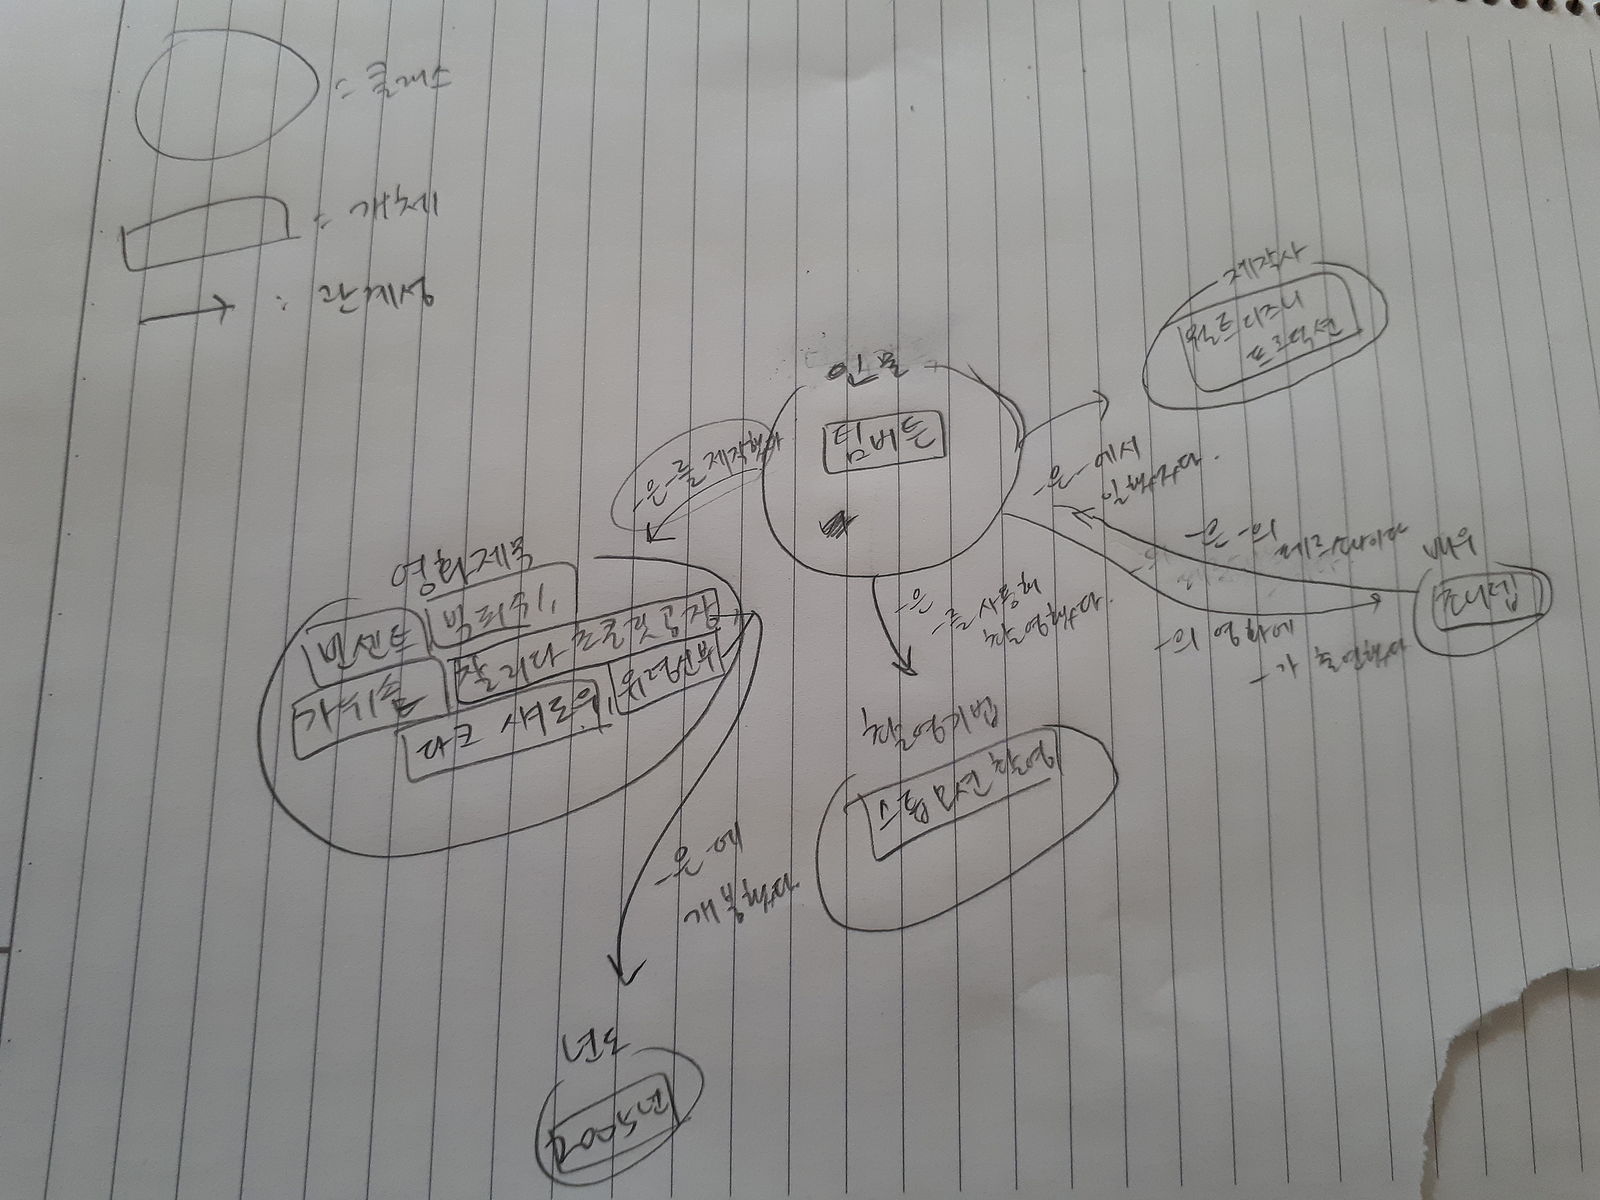 = 클래스
= 개체
: 관계성
제작사
월트디즈니
프로덕션
인물
팀버튼
-은-를 제작했다
-은-에서
일했다.
-은-의
페르소나이다
배우
죠니뎁
-의 영화에
-가 출연했다
-은
-를 사용해
촬영했다.
영화제목
빈센트
빅피쉬,
찰리와 초콜릿 공장
가위손
다크 섀도우,
유령신부
촬영기법
스톱모션 촬영
-은-에
개봉했다
년도
2005년